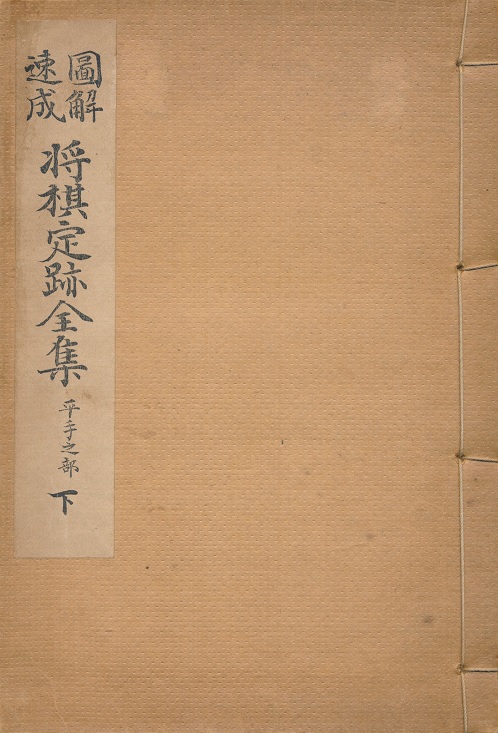 圖解
速成
将棋定跡全集
平手之部
下